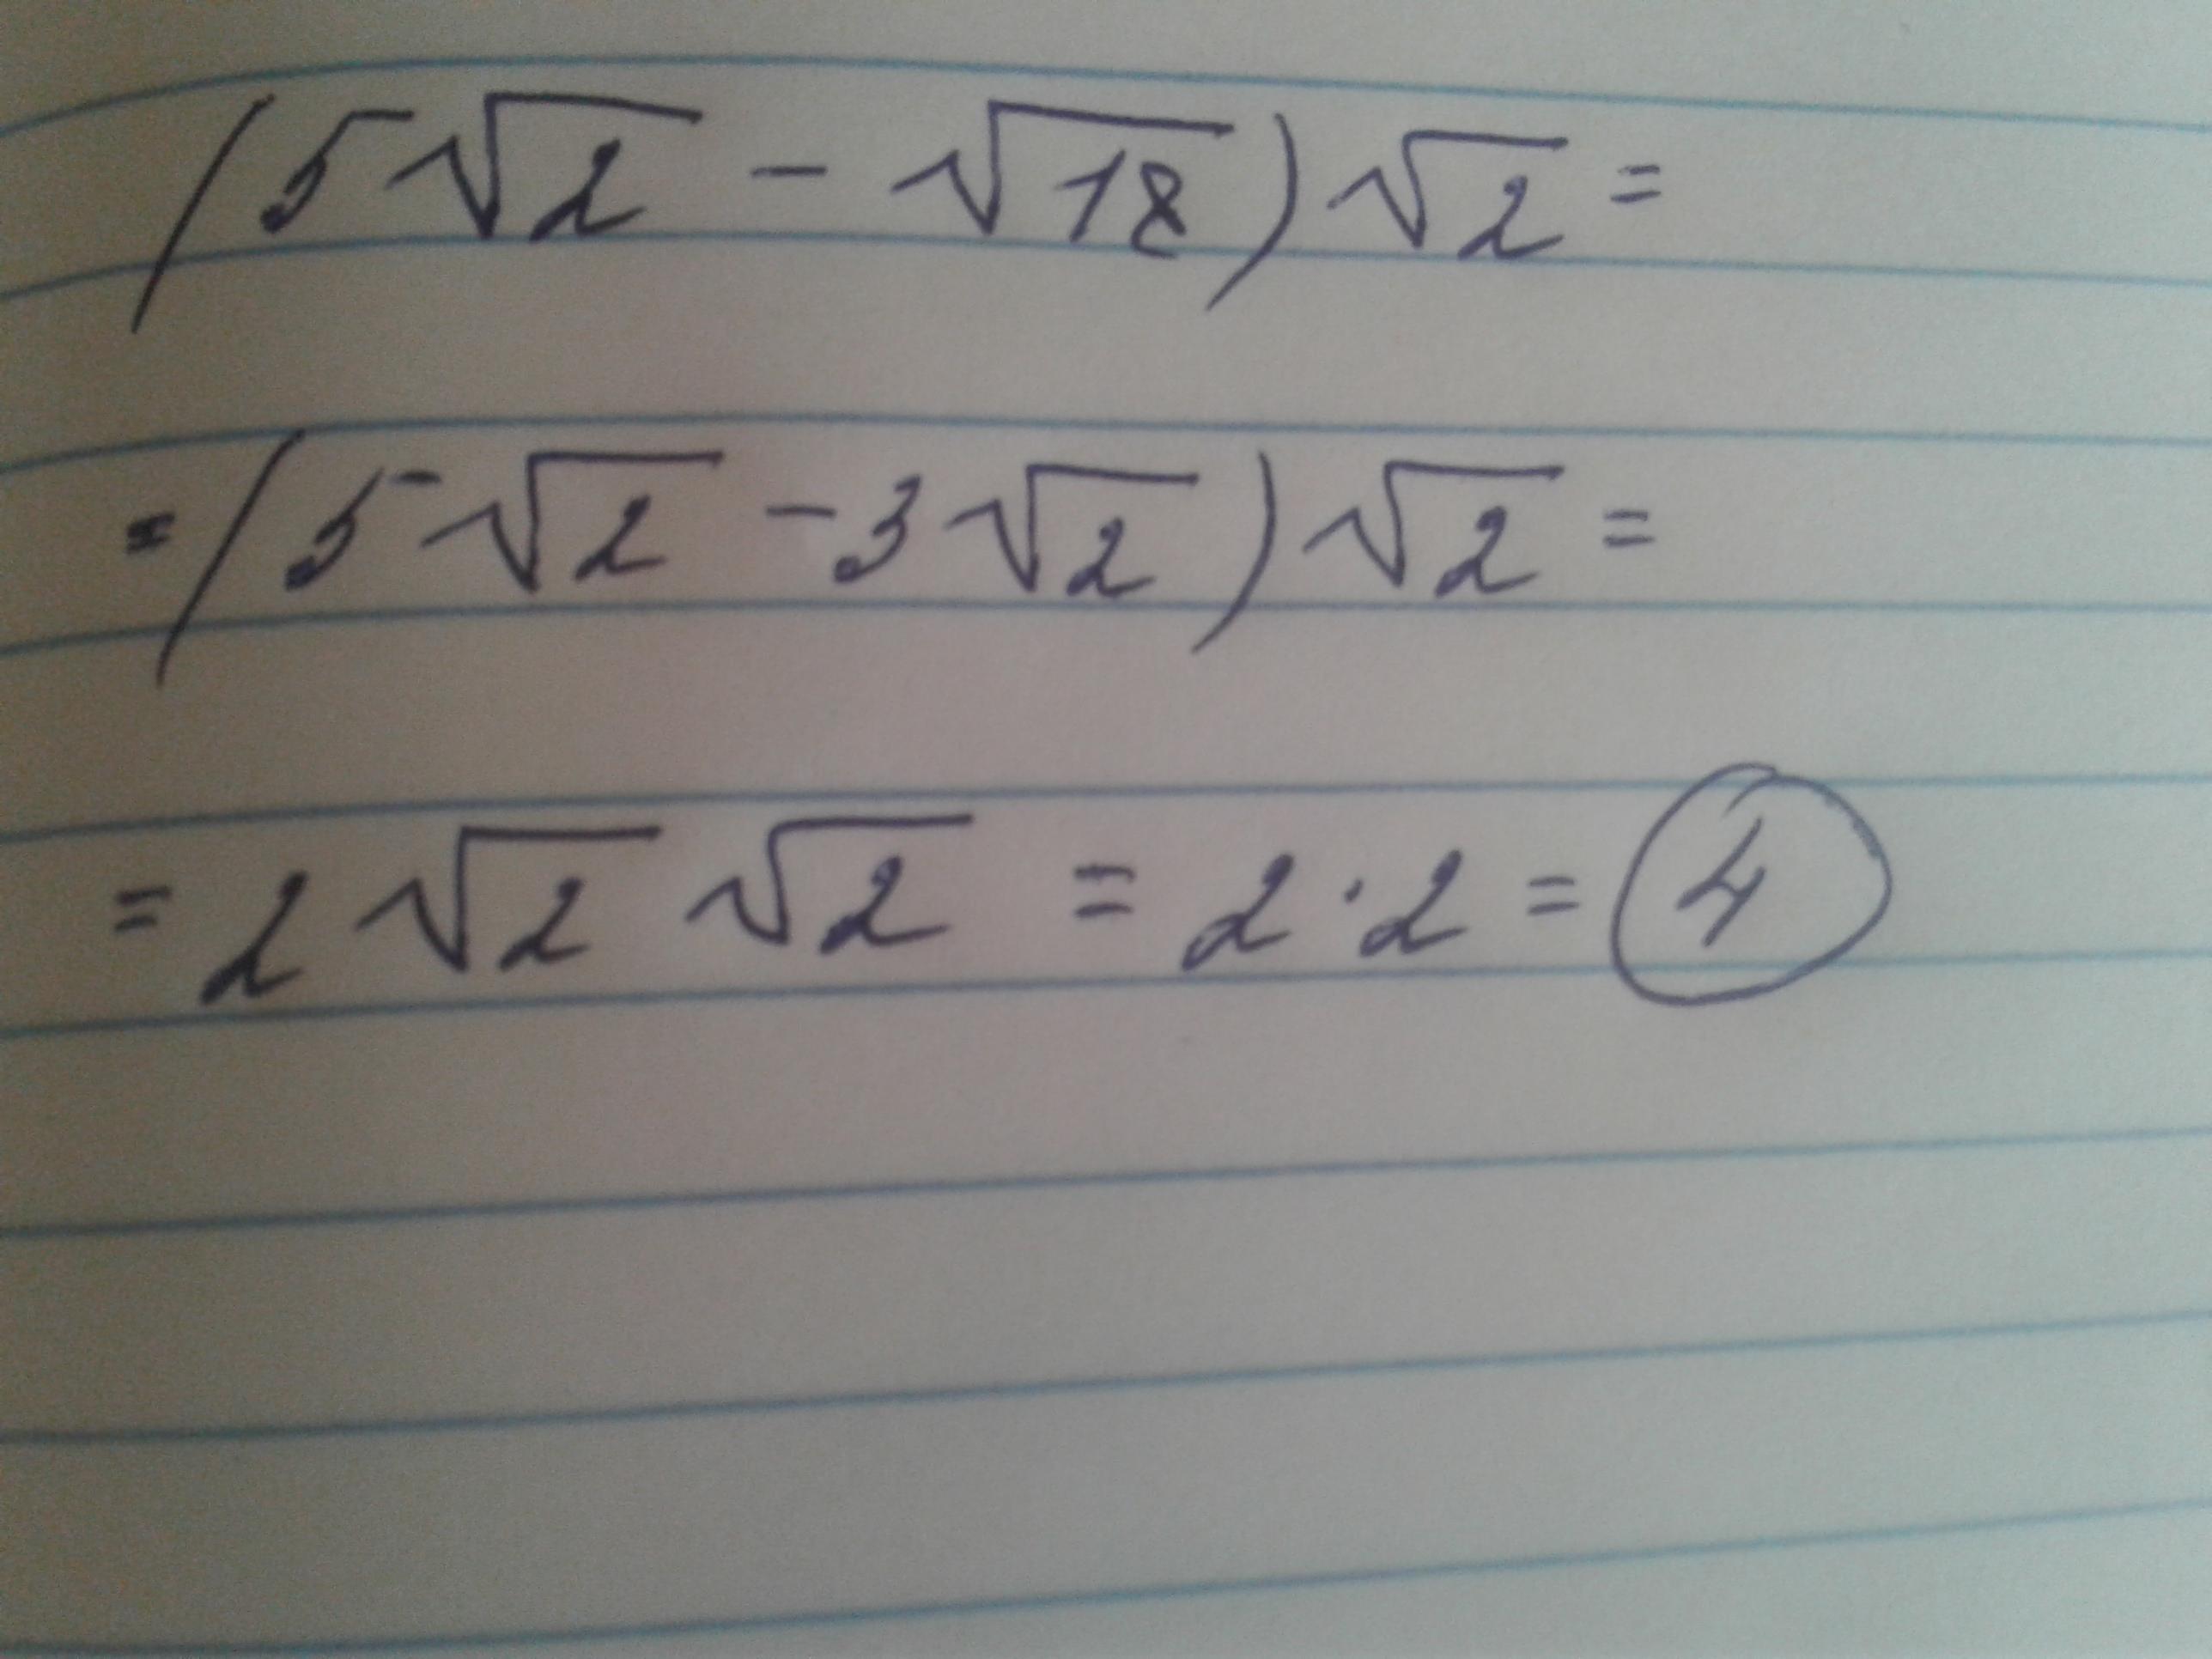 (5√2 - √18)√2 =
= (5√2 - 3√2)√2 =
= 2√2 √2 = 2·2 = 4